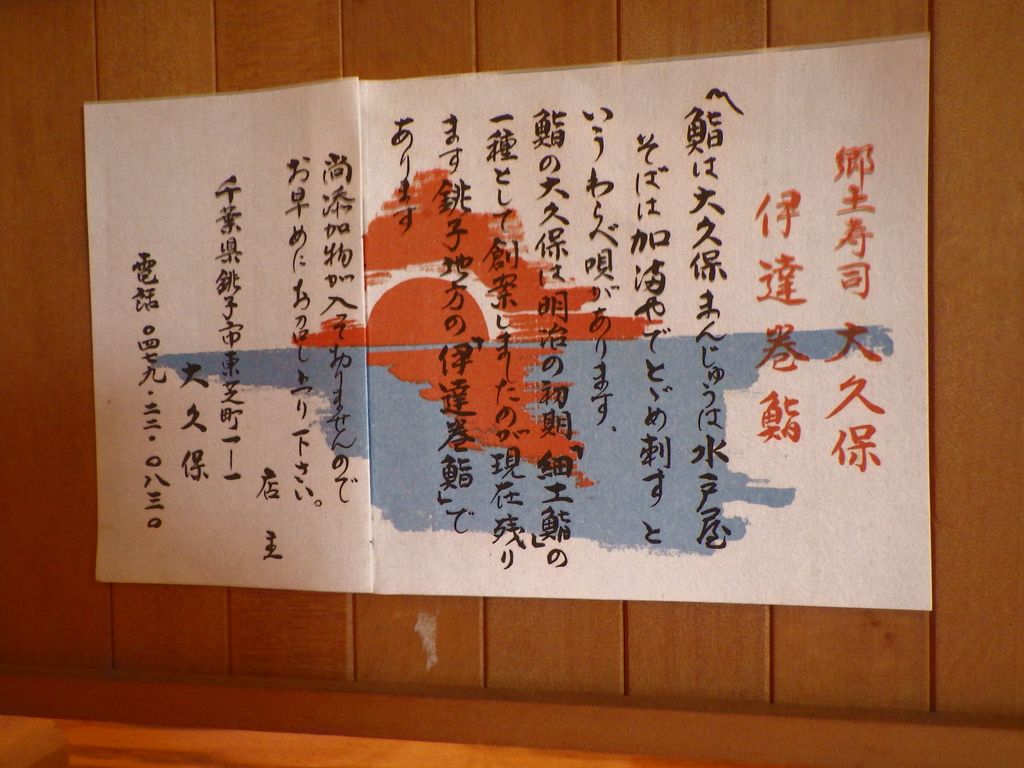 郷土寿司 大久保
伊達巻鮨
〽鮨は大久保まんじゅうは水戸屋
そばは加満やでとゞめ刺すと
いうわらべ唄があります、
鮨の大久保は明治の初期「細工鮨」の
一種として創案しましたのが現在残り
ます銚子地方の「伊達巻鮨」で
あります
尚添加物が入ておりませんので
お早めにお召し上り下さい。
店主
千葉県銚子市東芝町一ー一
大久保
電話〇四七九・二二・〇八三〇